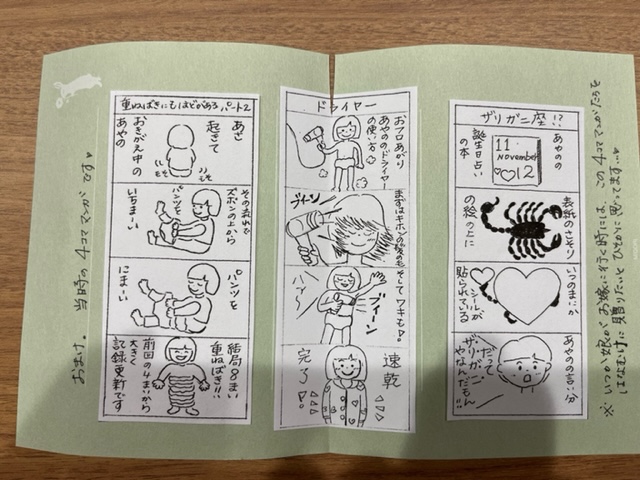 ※いつか娘がお嫁に行く時には、この4コママンガたちを
はなむけに贈りたいとひそかに思ってます…♥
ザリガニ座!?
あやのの
誕生日占い
の本
11
November
12
表紙のさそり
の絵の上に
いつのまにか
シールが
貼られている
あやのの言い分
だって
ザリガニ
やなんだもん!!
ドライヤー
おフロあがり
あやののドライヤー
の使い方
まずはキホンの髪のも
ブイーン
そしてワキも♪
ブイーン
速乾
完了♪
重ねばきにもほどがあるパート2
あさ
起きて
おきがえ中の
あやの
その流れで
ズボンの上から
パンツを
いちまーい
パンツを
にまーい
結局8まい
重ねばき!!
前回の4まいから
大きく
記録更新です
おまけ。 当時の4コママンガです♥